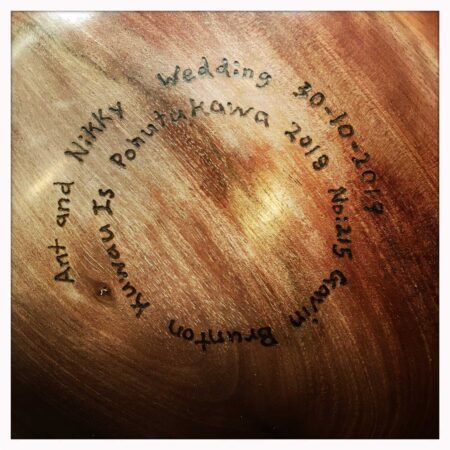 Ant and Nikky Wedding 30-10-2019
Kuwau Is Pohutukawa 2019 No:215 Gavin Brunton